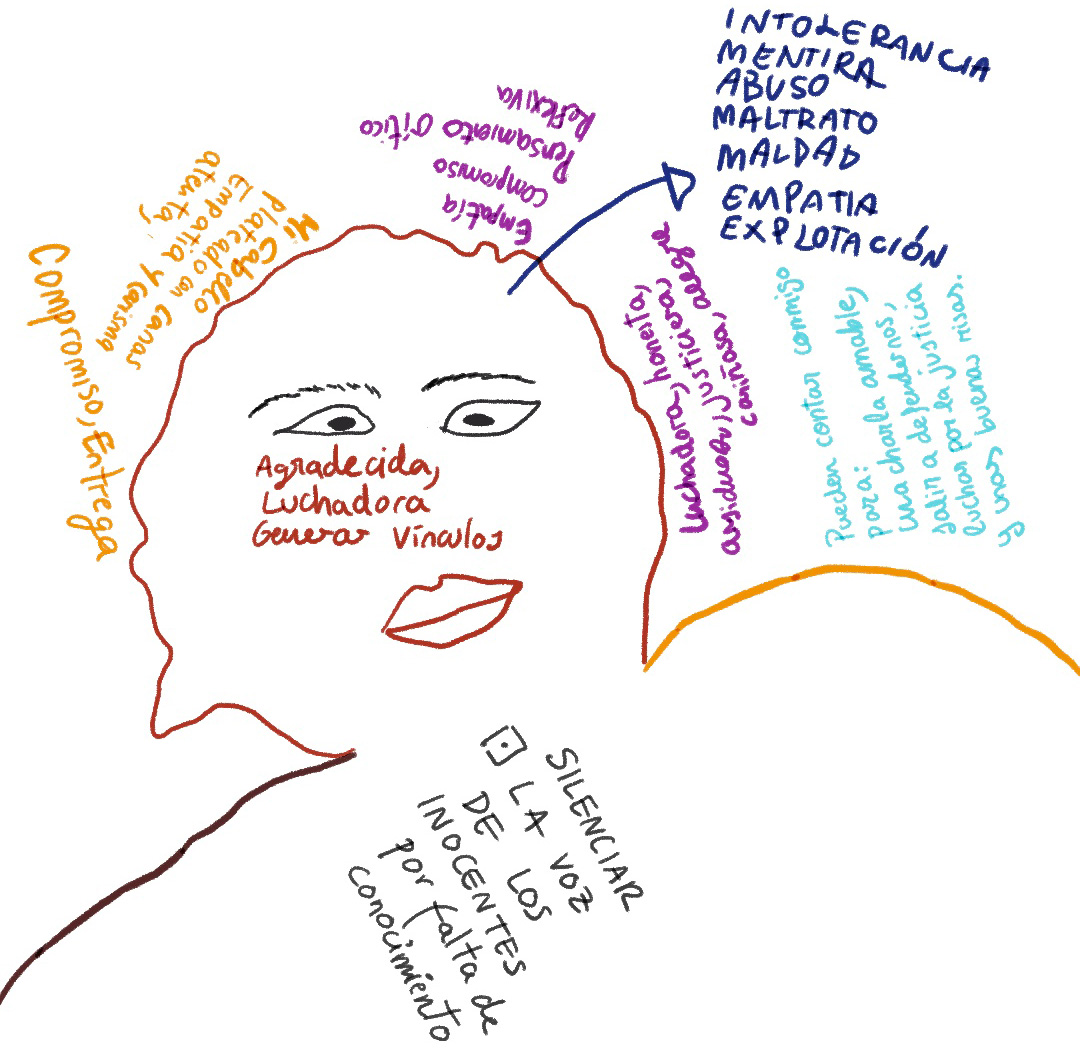 INTOLERANCIA
MENTIRA
ABUSO
MALTRATO
MALDAD
EMPATIA
EXPLOTACIÓN
Reflexiva
Pensamiento Crítico
Compromiso
Empatía
Mi Cabello
Plateado con canas
Empatía y carisma
atenta,
Compromiso, Entrega
Luchadora, honesta,
Justiciera,
Cariñosa, alegre
Pueden contar conmigo
para:
una charla amable,
defendernos,
salir a defender
luchar por la justicia
y unas buenas risas.
Agradecida,
Luchadora
Generar Vínculos
SILENCIAR
LA VOZ
DE LOS
INOCENTES
por falta de
conocimiento